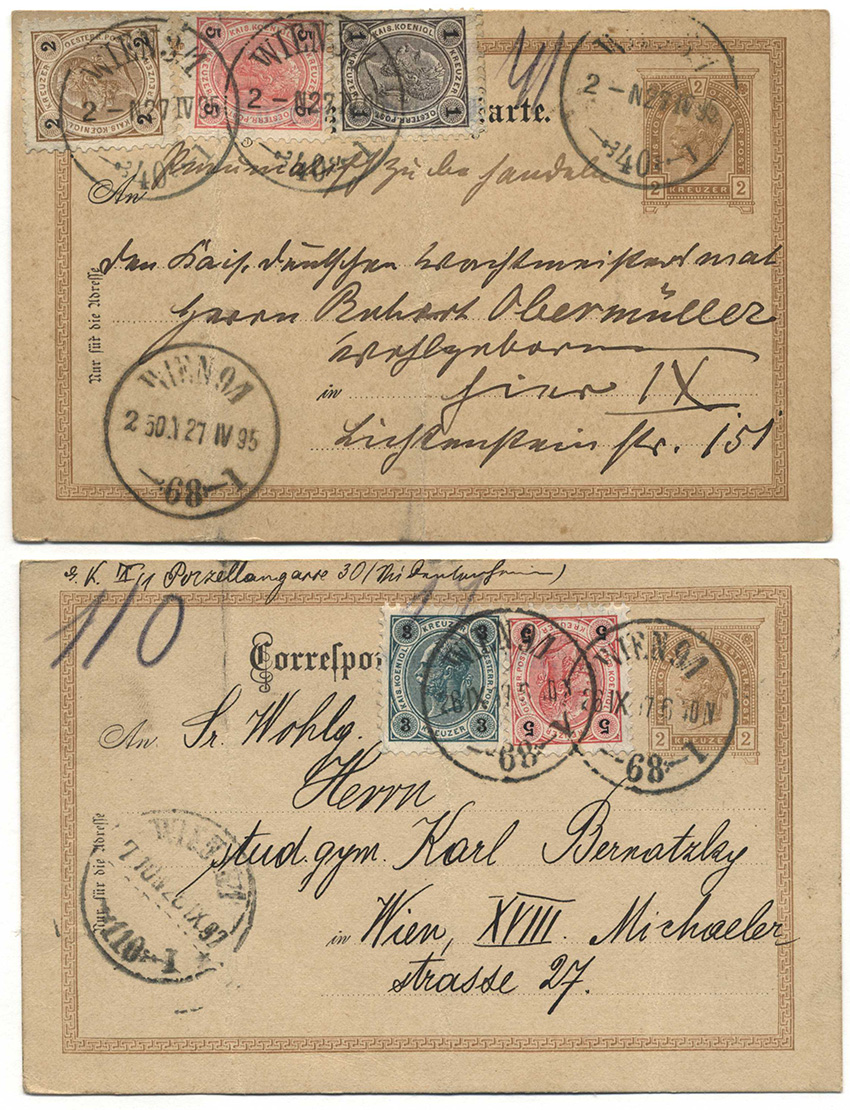 2 KREUZER 2
OESTERR. POST
KAIS. KOENIGL
5 KREUZER 5
OESTERR. POST
KAIS. KOENIGL
1 KREUZER 1
OESTERR. POST
KAIS. KOENIGL
WIEN 9/1
2-N 27 IV 95
40
WIEN
2-N 27
40
2-N 27 IV 95
40-1
arte.
2
2 KREUZER 2
Pneumatisch zu behandeln
An
den Kais. deutschen Wachtmeister
Herrn Robert Obermüller
Wohlgeboren
in hier IX
Lichtenstein str. 151
Nur für die Adresse
WIEN 9/1
2 50.N 27 IV 95
68-1
IX/1 Porzellangasse 30
110
Correspo
3 KREUZER 3
KAIS. KOENIGL
OESTERR. POST
5 KREUZER 5
KAIS. KOENIGL
OESTERR. POST
WIEN 9/1
26 IX
68-1
WIEN 9/1
26 IX 97 6 40 N
68-1
2 KREUZER 2
An Sr. Wohlg.
Herrn
stud. gym. Karl Bernatzky
in Wien, XVIII. Michaeler
strasse 27.
Nur für die Adresse
WIEN
7 10 N 26 IX 97
110-1